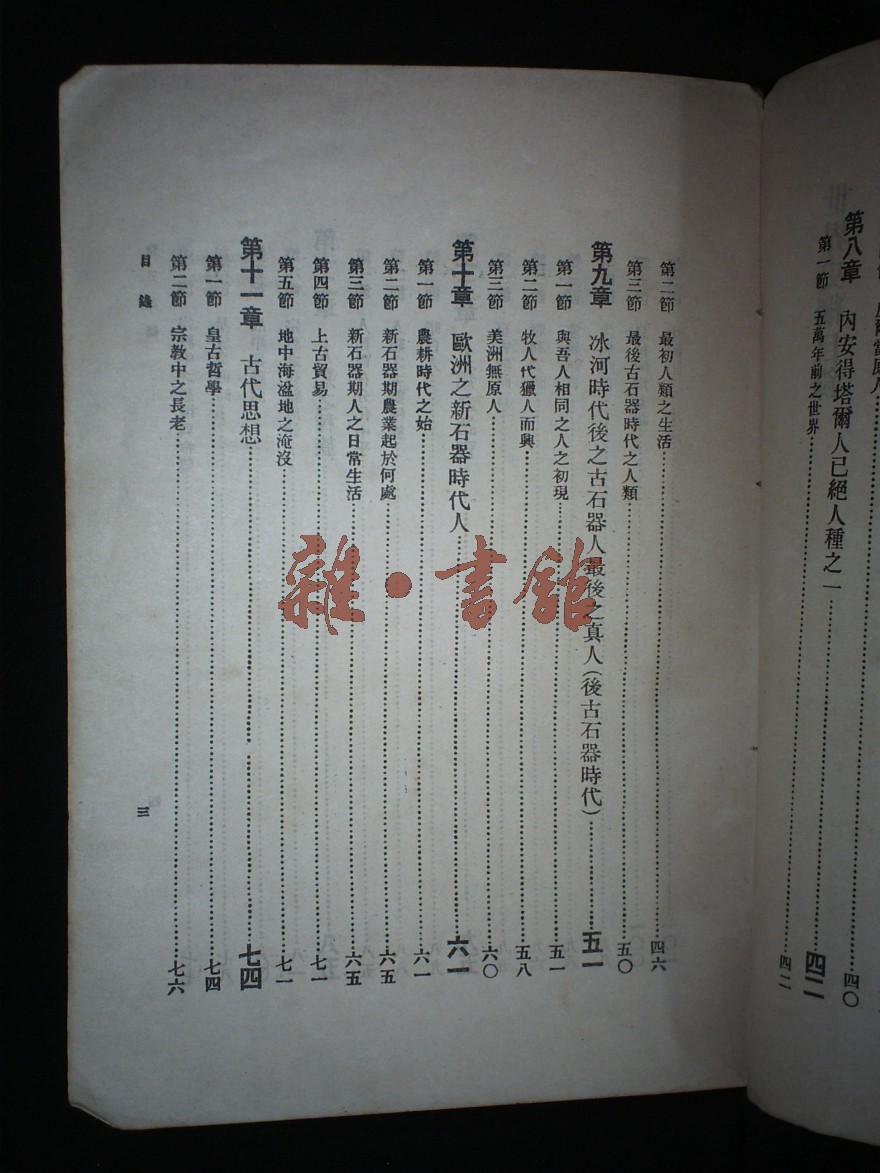 第八章 內安得塔爾人已絕人種之一 四二
第一節 五萬年前之世界 四二
第二節 最初人類之生活 四六
第三節 最後古石器時代之人類 五〇
第九章 冰河時代後之古石器人最後之真人(後古石器時代) 五一
第一節 與吾人相同之人之初現 五一
第二節 牧人代獵人而興 五八
第三節 美洲無原人 六〇
第十章 歐洲之新石器時代人 六一
第一節 農耕時代之始 六一
第二節 新石器期農業起於何處 六五
第三節 新石器期人之日常生活 六五
第四節 上古貿易 七一
第五節 地中海溢地之淹沒 七一
第十一章 古代思想 七四
第一節 皇古哲學 七四
第二節 宗教中之長老 七六
目錄
三
雜·書館